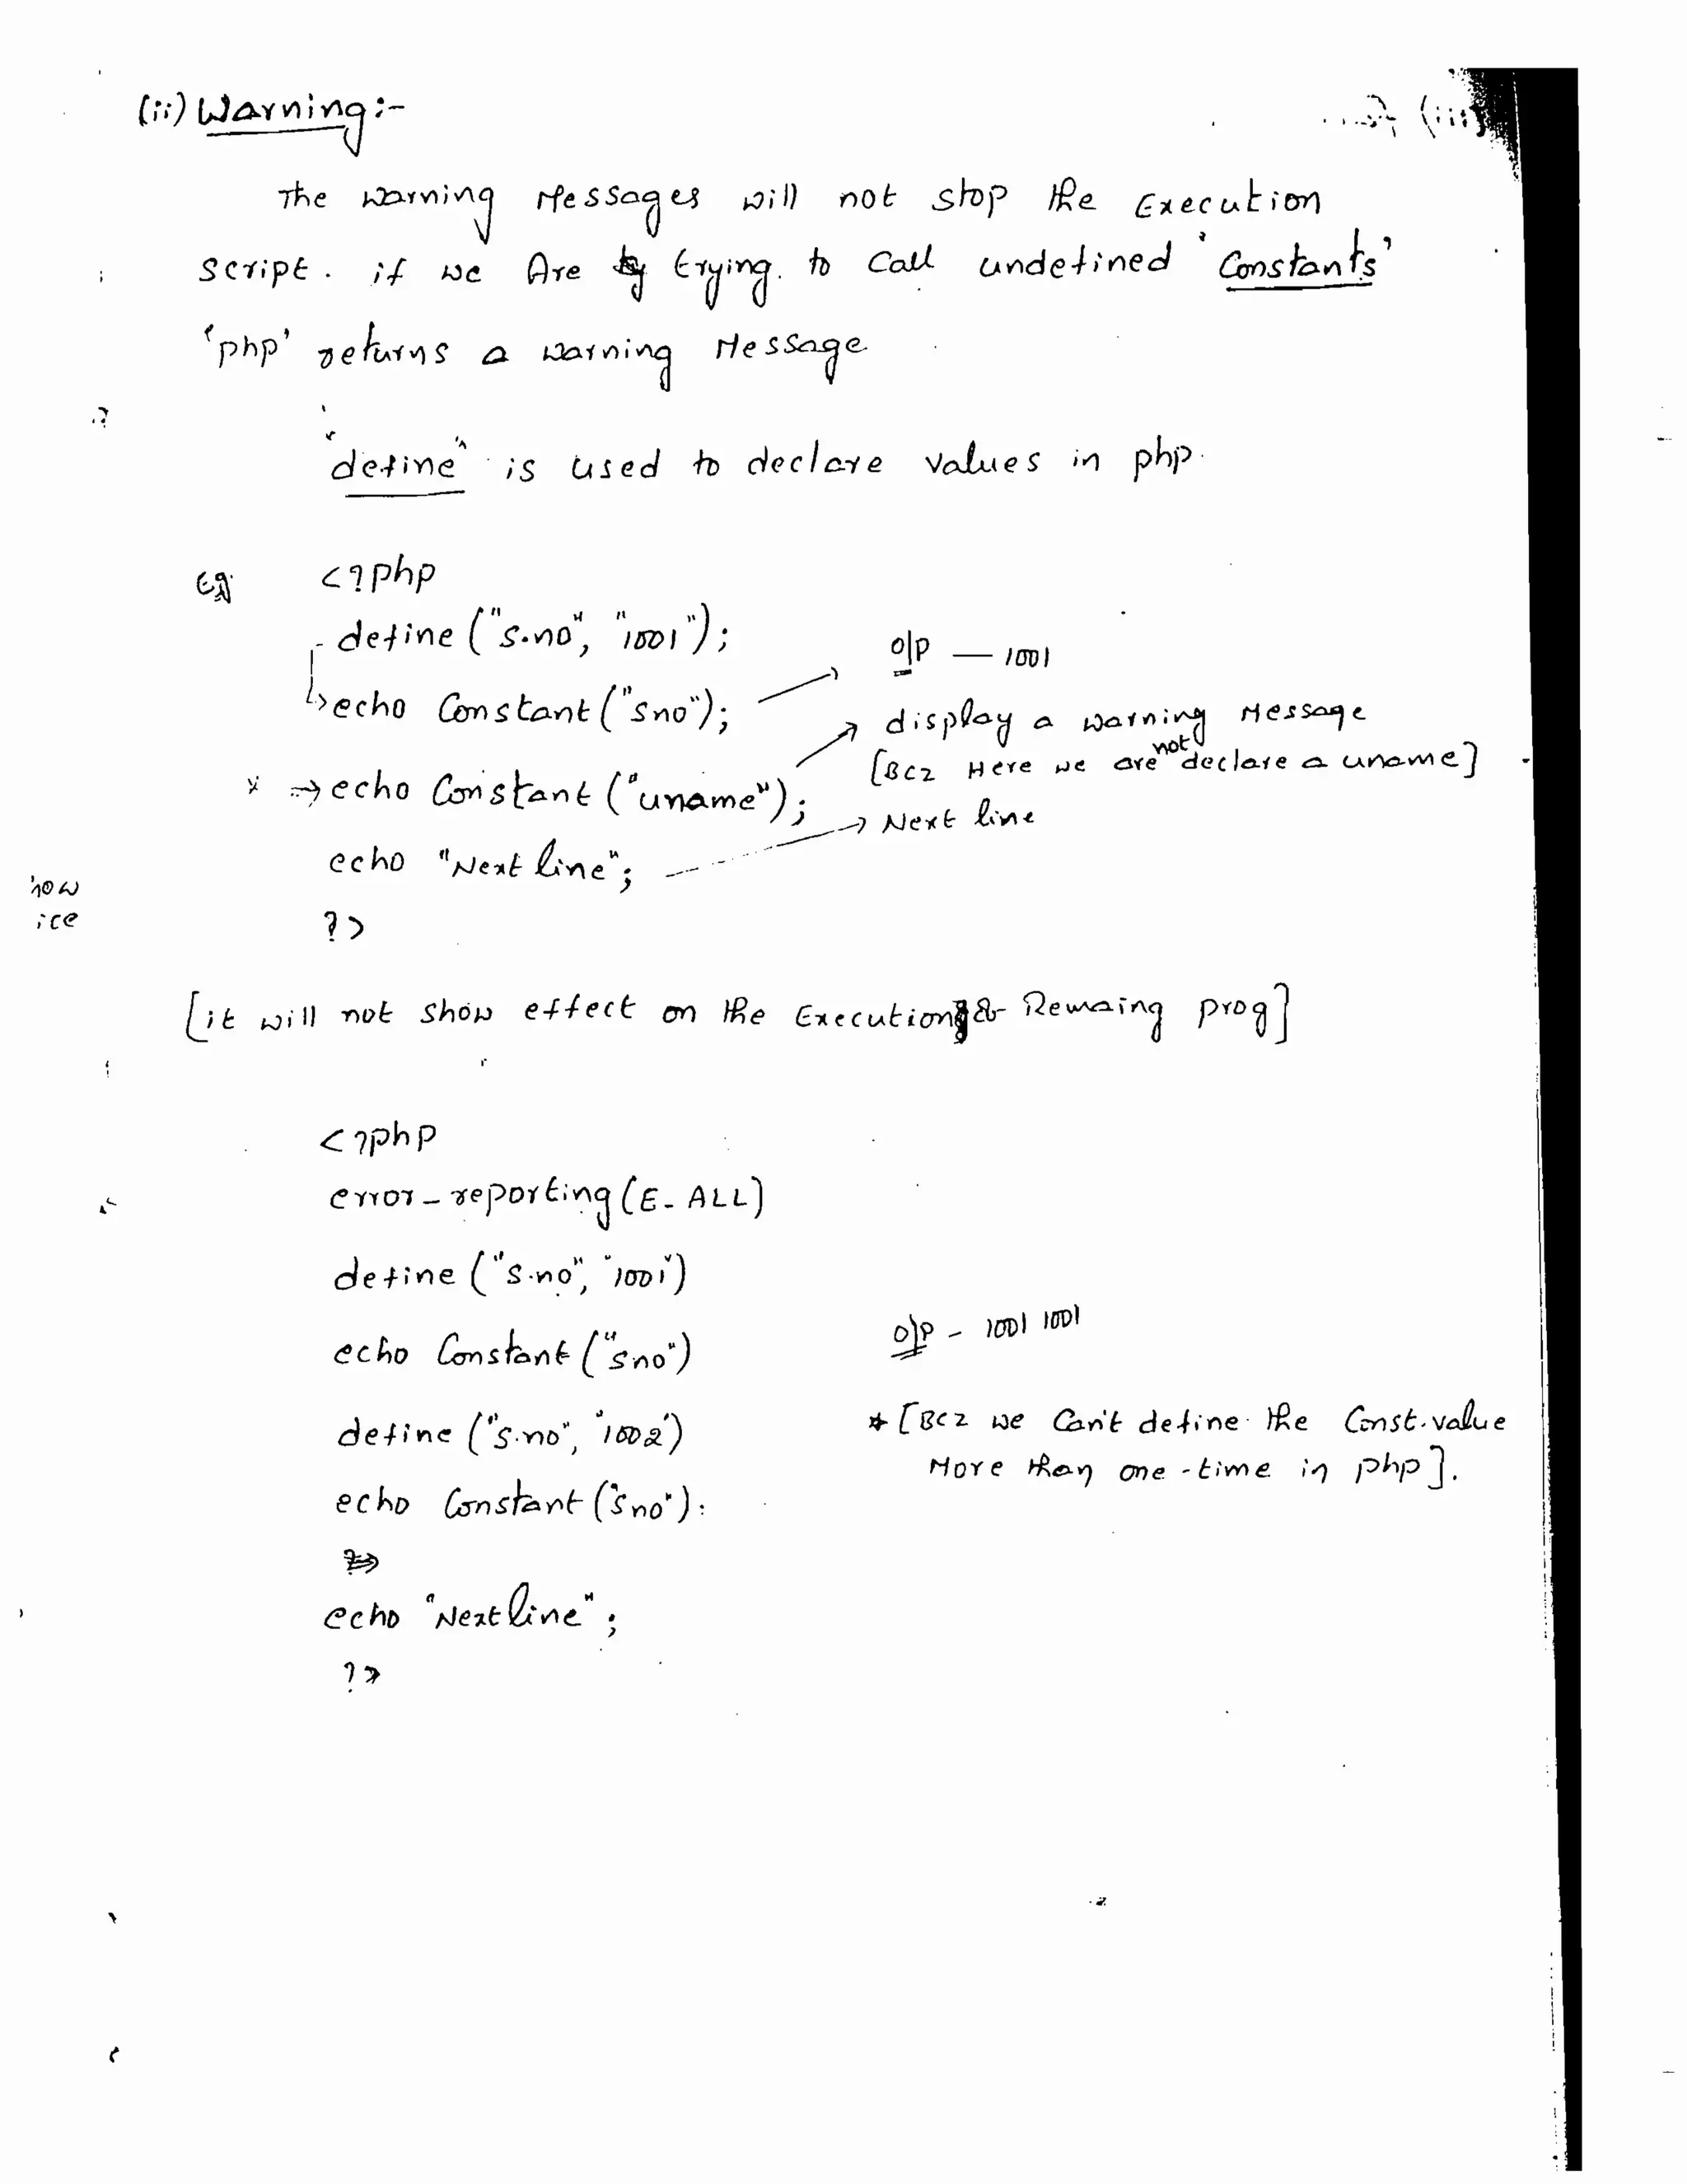 (ii) Warning :-
The warning Messages will not stop the Execution
script. if we Are trying. to call undefined 'Constants'
'php' returns a warning Message
"define" is used to declare values in php.
Eg <?php
define ("s.no", "1001");
o/p — 1001
echo Constant ("sno");
display a warning Message
[Bcz Here we are not declare a uname]
x => echo Constant ("uname");
Next line
echo "Next line";
?>
[it will not show effect on the Execution & Remaing prog]
<?php
error_reporting (E_ALL)
define ("s.no", "1001")
echo Constant ("sno")
o/p - 1001 1001
define ("s.no", "1002")
* [Bcz we Can't define the Const. value
More than one-time in php].
echo Constant ("sno").
echo "Next line";
?>